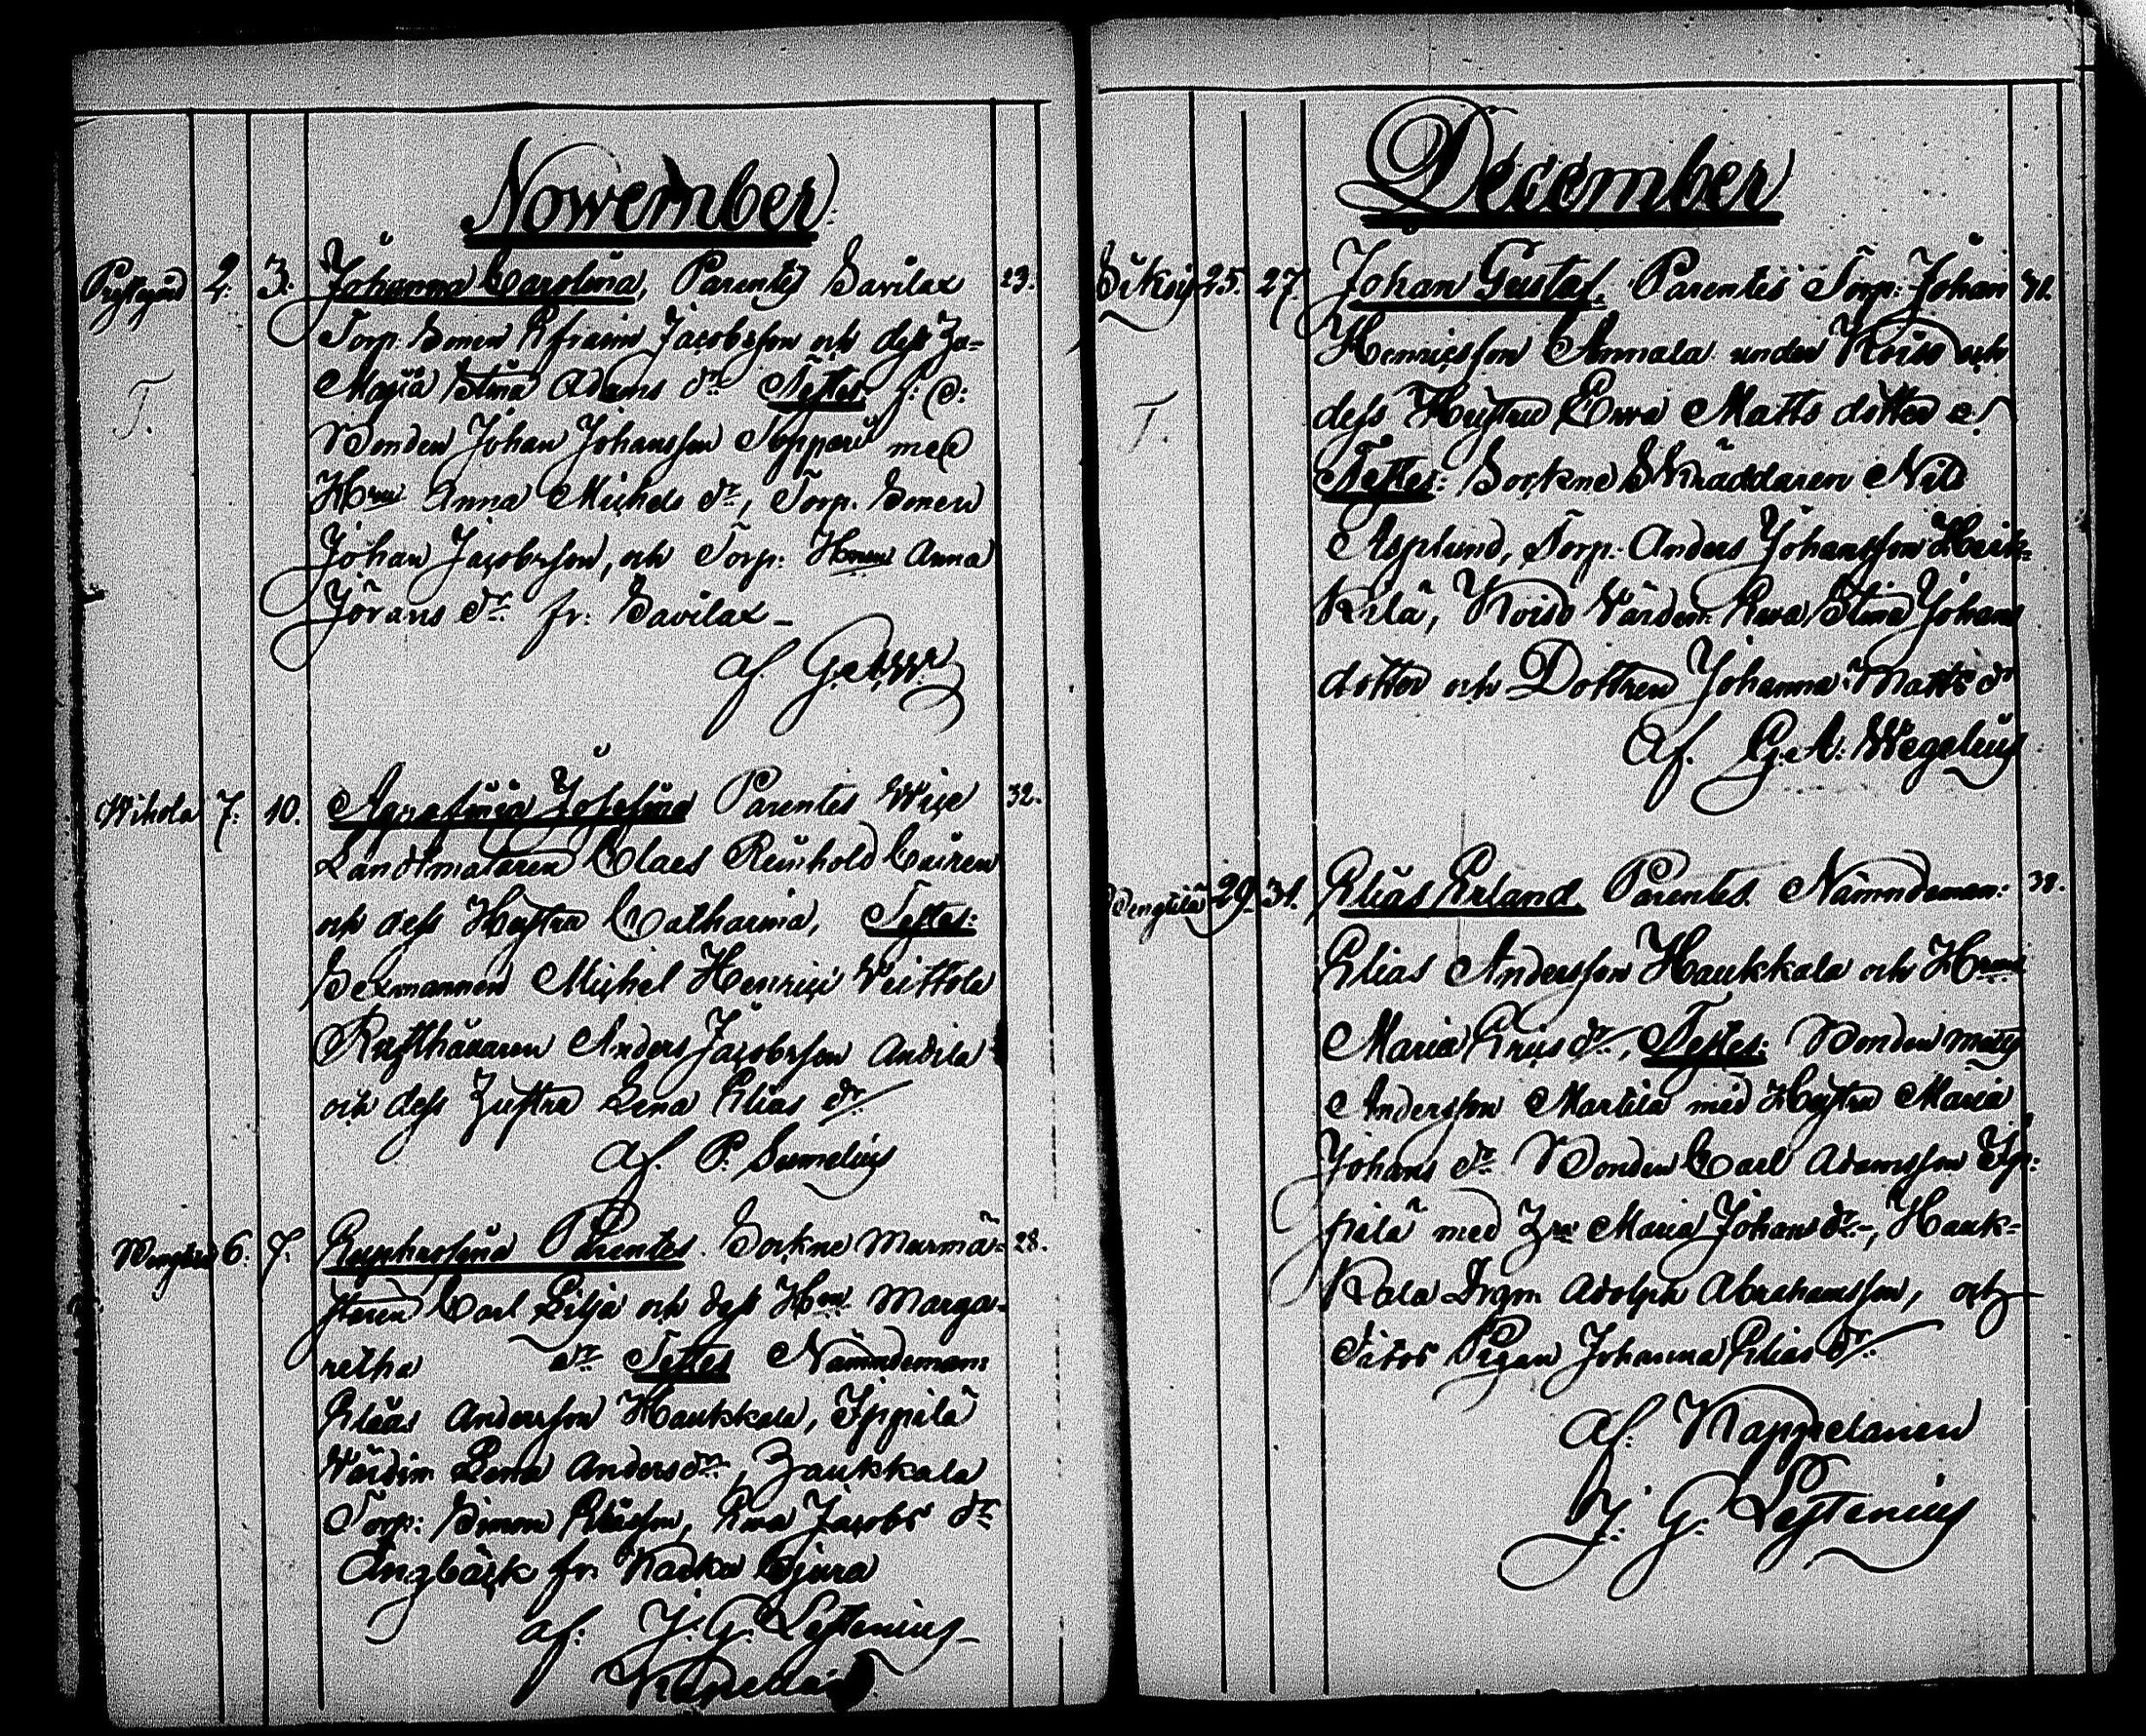 Nowember
2. 3. Johanna Carolina, Parentes Savilax 23.
Torp. Sonen Efraim Jacobsson och dess Hu-
Maria Stina Adams dr Testes:
T.
Bonden Johan Johansson Toppari med
Hru Anna Michels dr, Torp. Sonen
Johan Jacobsson, och Torp: Anna
Jörans dr. fr: Savilax
af
Wihola 7. 10. Agrafina Josefina Parentes Wice 32.
Landtmätaren Claes Reinhold Cairen
och dess Hustru Catharina, Testes:
Sexmannen Michel Henrici Veittola
Rusthållaren Anders Jacobsson Andila
och dess Hustru Lena Elias dr
af. P. Sumelius
6. 7. Euphrosina Parentes. Sockne Murmä- 28.
staren Carl Lilja och dess Hru Marga-
retha dr Testes Nämndeman:
Elias Andersson Haukkala, Ippilä
Värdin Lena Anders dr, Haukkala
Torp: Simon Eliasson, Ewa Jacobs dr
Ängbäck fr.
af: J. G. Lestenius
December
25. 27. Johan Gustaf. Parentes Torp. Johan 31.
Henricsson Annala under Koiso och
dess Hustru Ewa Matts dotter
T.
Testes: Sockne Skräddaren Nils
Asplund, Torp. Anders Johansson Heik-
kilä, Koiso Värdin: Ewa Stina Johans
dotter och Dottren Johanna Matts dr
af. G. A. Wegelius
29. 31. Elias Erland Parentes. Nämndeman: 38.
Elias Andersson Haukkala och Hrun
Maria Eriks dr, Testes: Bonden Matts
Andersson Martila med Hustru Maria
Johans dr Bonden Carl Adamsson Ip-
pilä med Hru Maria Johans dr, Hauk-
kala Drgn Adolph Abrahamsson, och
Pigan Johanna Elias dr.
af. Kappelanen
J. G. Lestenius